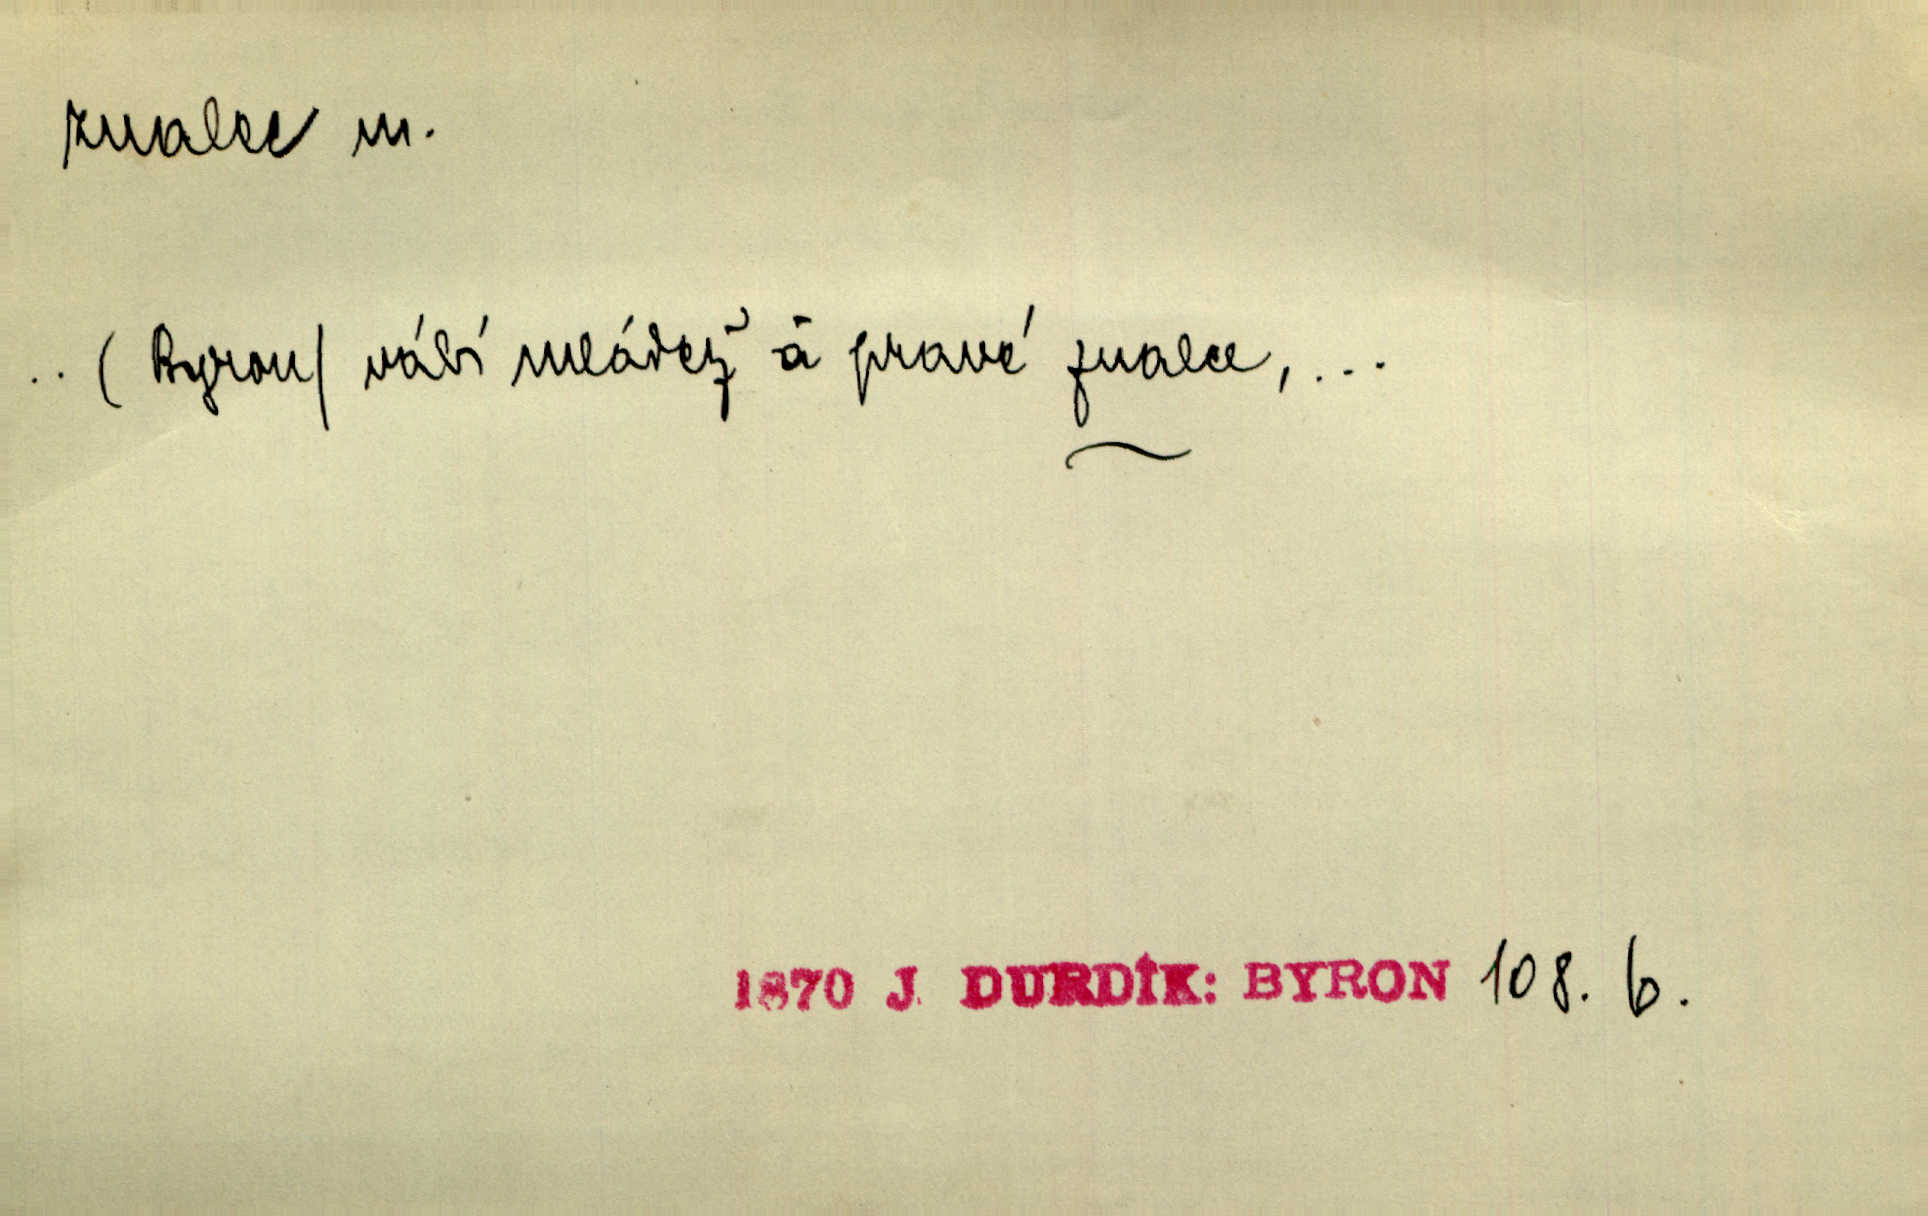 znalec m.
.. (Byron) vábí mládež a pravé znalce, ...
1870 J. DURDÍK: BYRON 108. b.